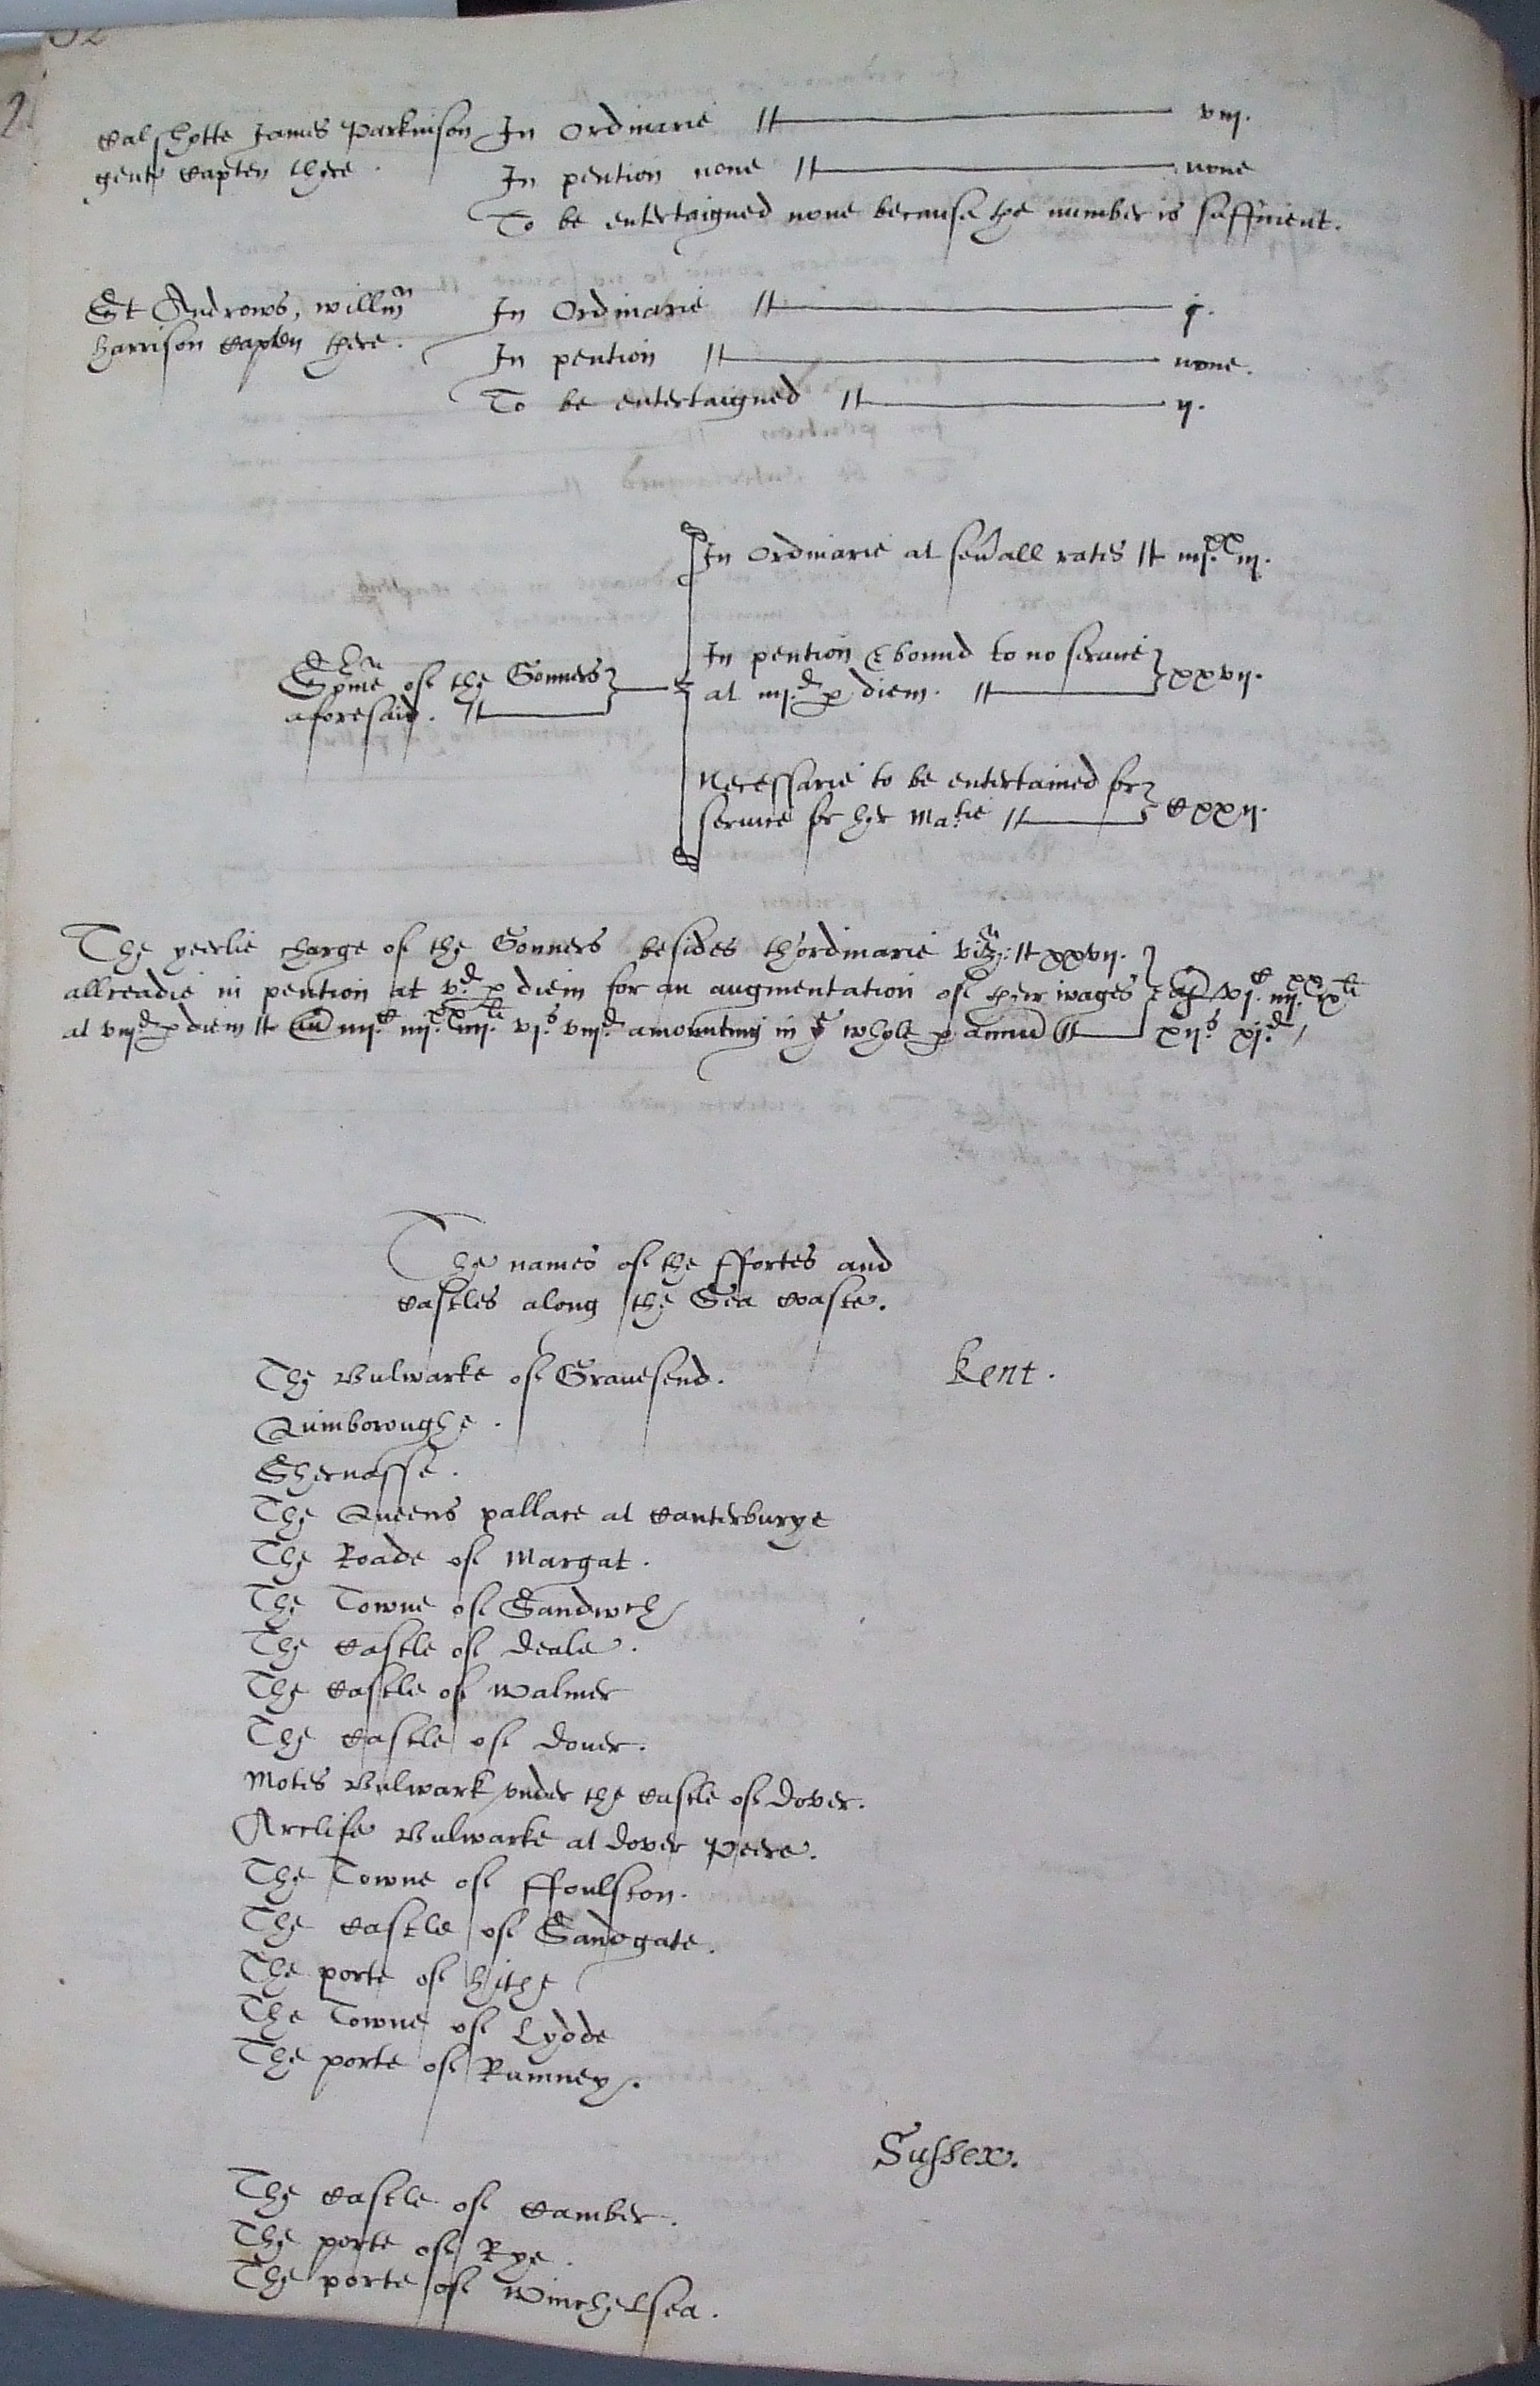 Calshotte James Parkinson In Ordinarie — viij.
gent Capten there. In pention none — none
To be entertaigned none because the number is suffitient.
St Androws, Willm In Ordinarie — j.
Harrison Capten there. In pention — none.
To be entertaigned — ij.
In Ordinarie at seuall rates iiij.xx iij.
In pention & bound to no seruice
Sume of the Gonners at iiij.d p diem. — xxvij.
aforesaid.
Necessarie to be entertained for
seruice for her Matie — Cxxij.
The yeerlie charge of the Gonners besides thordinarie viz: xxvij.
allreadie in pention at v.d p diem for an augmentation of their wages & vj.C iiij.xx ixli
at viij.d p diem iiij.C iiij.xx iiij.li vj.s viij.d amounting in ye whole p annu — xij.s xj.d
The names of the Ffortes and
Castles along the Sea Coaste.
Kent.
The Bulwarke of Grauesend.
Quimboroughe.
Shernasse.
The Queens pallace at Canterburye
The Roade of Margat.
The Towne of Sandwch
The Castle of Deale.
The Castle of Walmer
The Castle of Douer.
Motes Bulwark vnder the Castle of Dover.
Arclife Bulwarke at Dover Peere.
The Towne of Ffoulston.
The Castle of Sandgate.
The porte of Hithe
The Towne of Lydde
The porte of Rumney.
Sussex.
The Castle of Camber.
The porte of Rye.
The porte of Winchelsea.